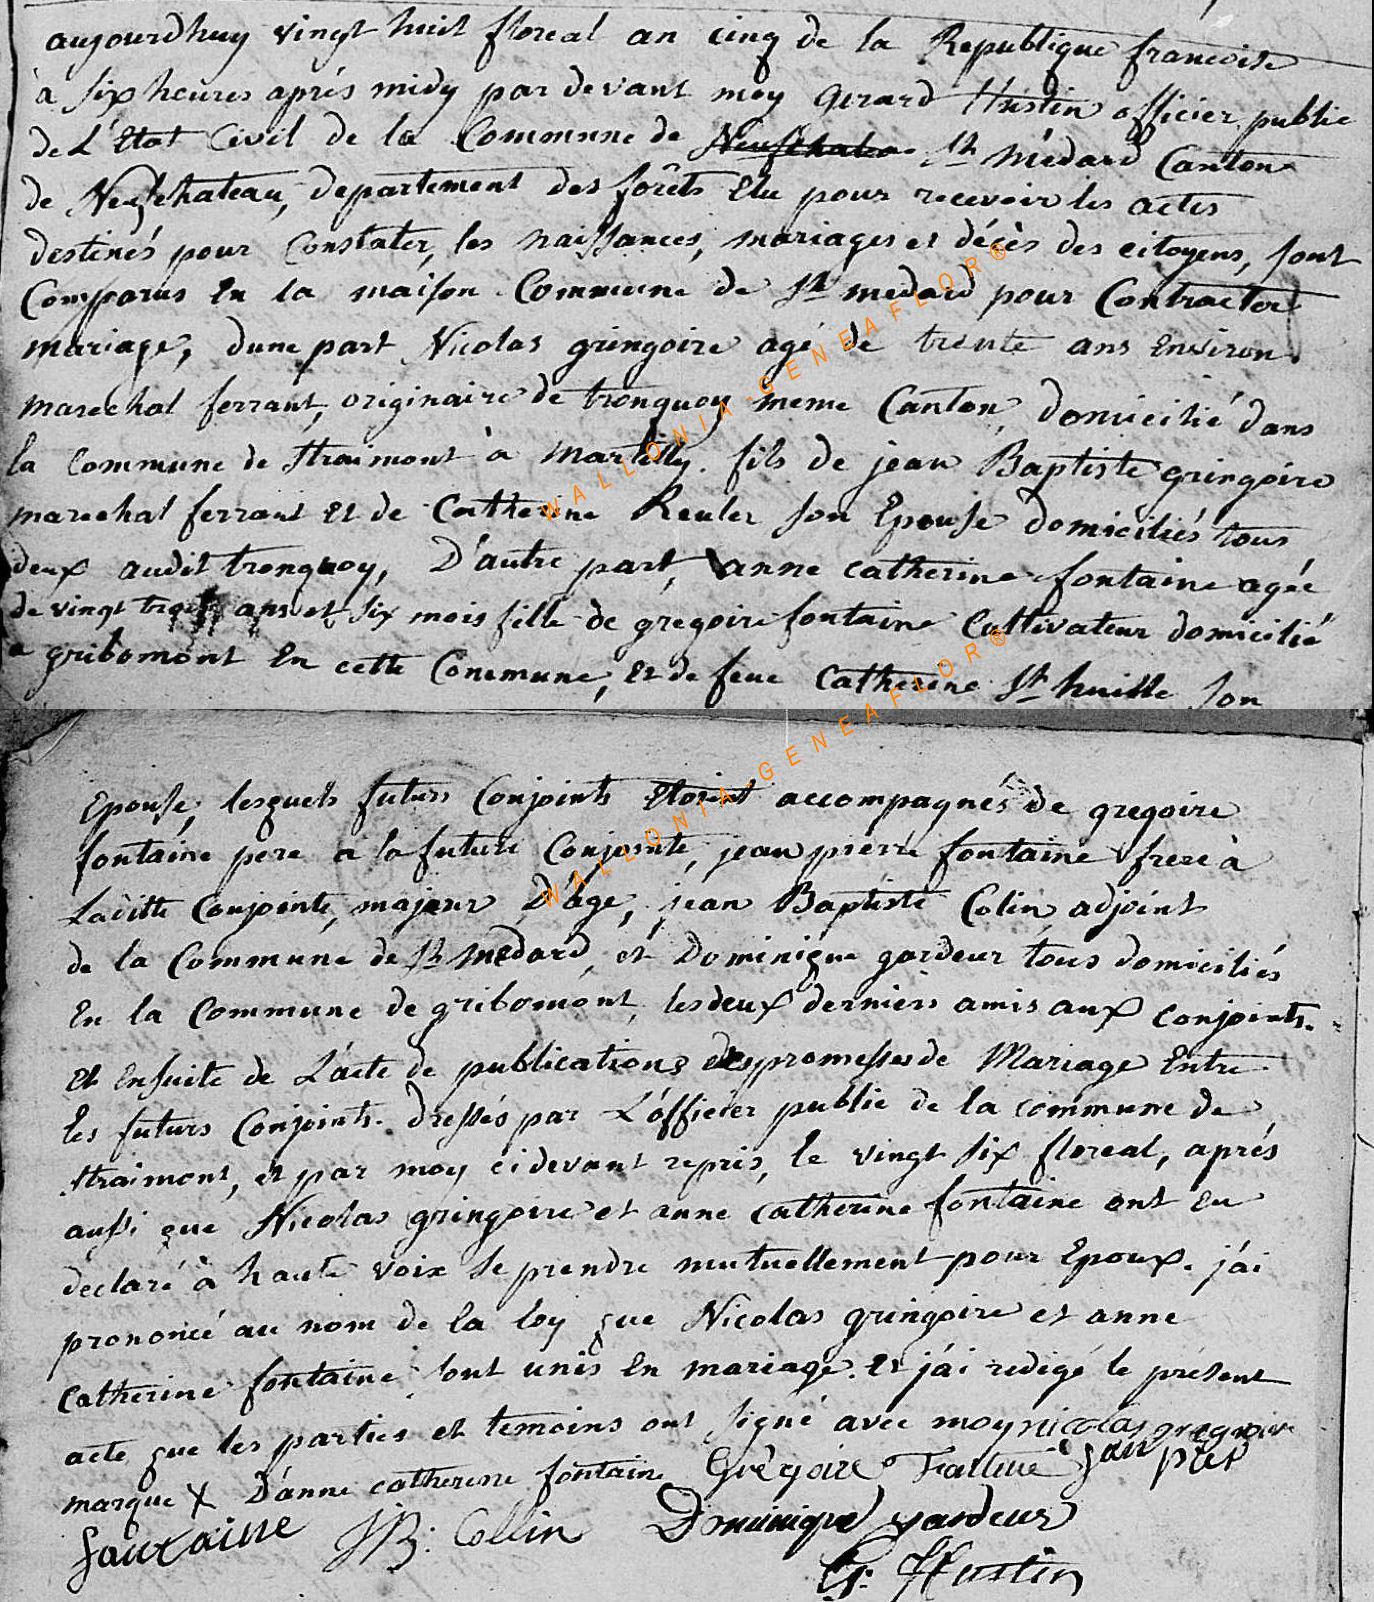 aujourdhuy vingt huit floreal an cinq de la Republique francoise
à six heures aprés midy par devant moy Gerard Hustin officier public
de L'Etat Civil de la Commune de Neufchatea St médard Canton
de Neufchateau, departement des forêts Elu pour recevoir les actes
destinés pour Constater, les naissances, mariages et décès des citoyens, sont
Comparus En la maison Commune de St medard pour Contracter
mariage, dune part Nicolas gringoire agé de trente ans Environ
marechal ferrant, originaire de tronquoy meme Canton, domicilié dans
la Commune de straimont à martilly. fils de jean Baptiste gringoire
marechal ferrant Et de Catherine Reuler son Epouse domiciliés tous
deux audit tronquoy, D'autre part, anne catherine fontaine agée
de vingt trois ans et six mois fille de gregoire fontaine Cultivateur domicilié
a gribomont En cette Commune, Et de feue Catherine St huille son
Epouse, lesquels futurs Conjoints Etoient accompagnés de gregoire
fontaine pere a la future Conjointe, jean pierre fontaine frere à
Laditte Conjointe, majeur D'âge, jean Baptiste Colin adjoint
de la Commune de St medard, et Dominique gardeur tous domiciliés
En la Commune de gribomont, les deux derniers amis aux conjoints.
Et Ensuite de L'acte de publications des promesses de Mariage Entre
les futurs Conjoints. dressés par L'officier public de la commune de
straimont, et par moy cidevant repris, le vingt six floreal, aprés
aussi que Nicolas gringoire et anne catherine fontaine ont Eu
declaré à haute voix se prendre mutuellement pour Epoux. j'ai
prononcé au nom de la loy que Nicolas gringoire et anne
catherine fontaine sont unis En mariage. Et j'ai redigé le présent
acte que les parties et temoins ont signé avec moy nicolas gregoire
marque X D'anne catherine fontaine Grègoire Fautenè jan pier
fautaine JB: Collin Dominique gardeur
G: Hustin
WALLONIA-GENEAFLOR®
WALLONIA-GENEAFLOR®